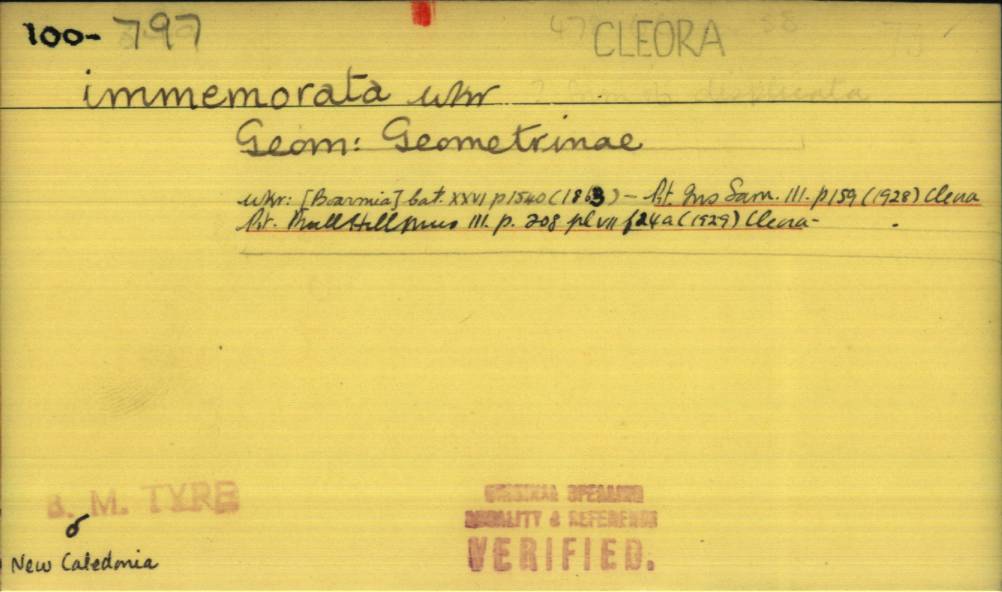 100-797
CLEORA
immemorata wkr
Geom: Geometrinae
wkr: [Boarmia] Cat. XXVI p 1540 (1863) - Pt. Ins Sam. III. p 159 (1928) Cleora
Pt. Bull Hill Mus III. p. 208 pl VII f 24a (1929) Cleora-
B. M. TYPE
♂
New Caledonia
ORIGINAL SPELLING
LOCALITY & REFERENCE
VERIFIED.